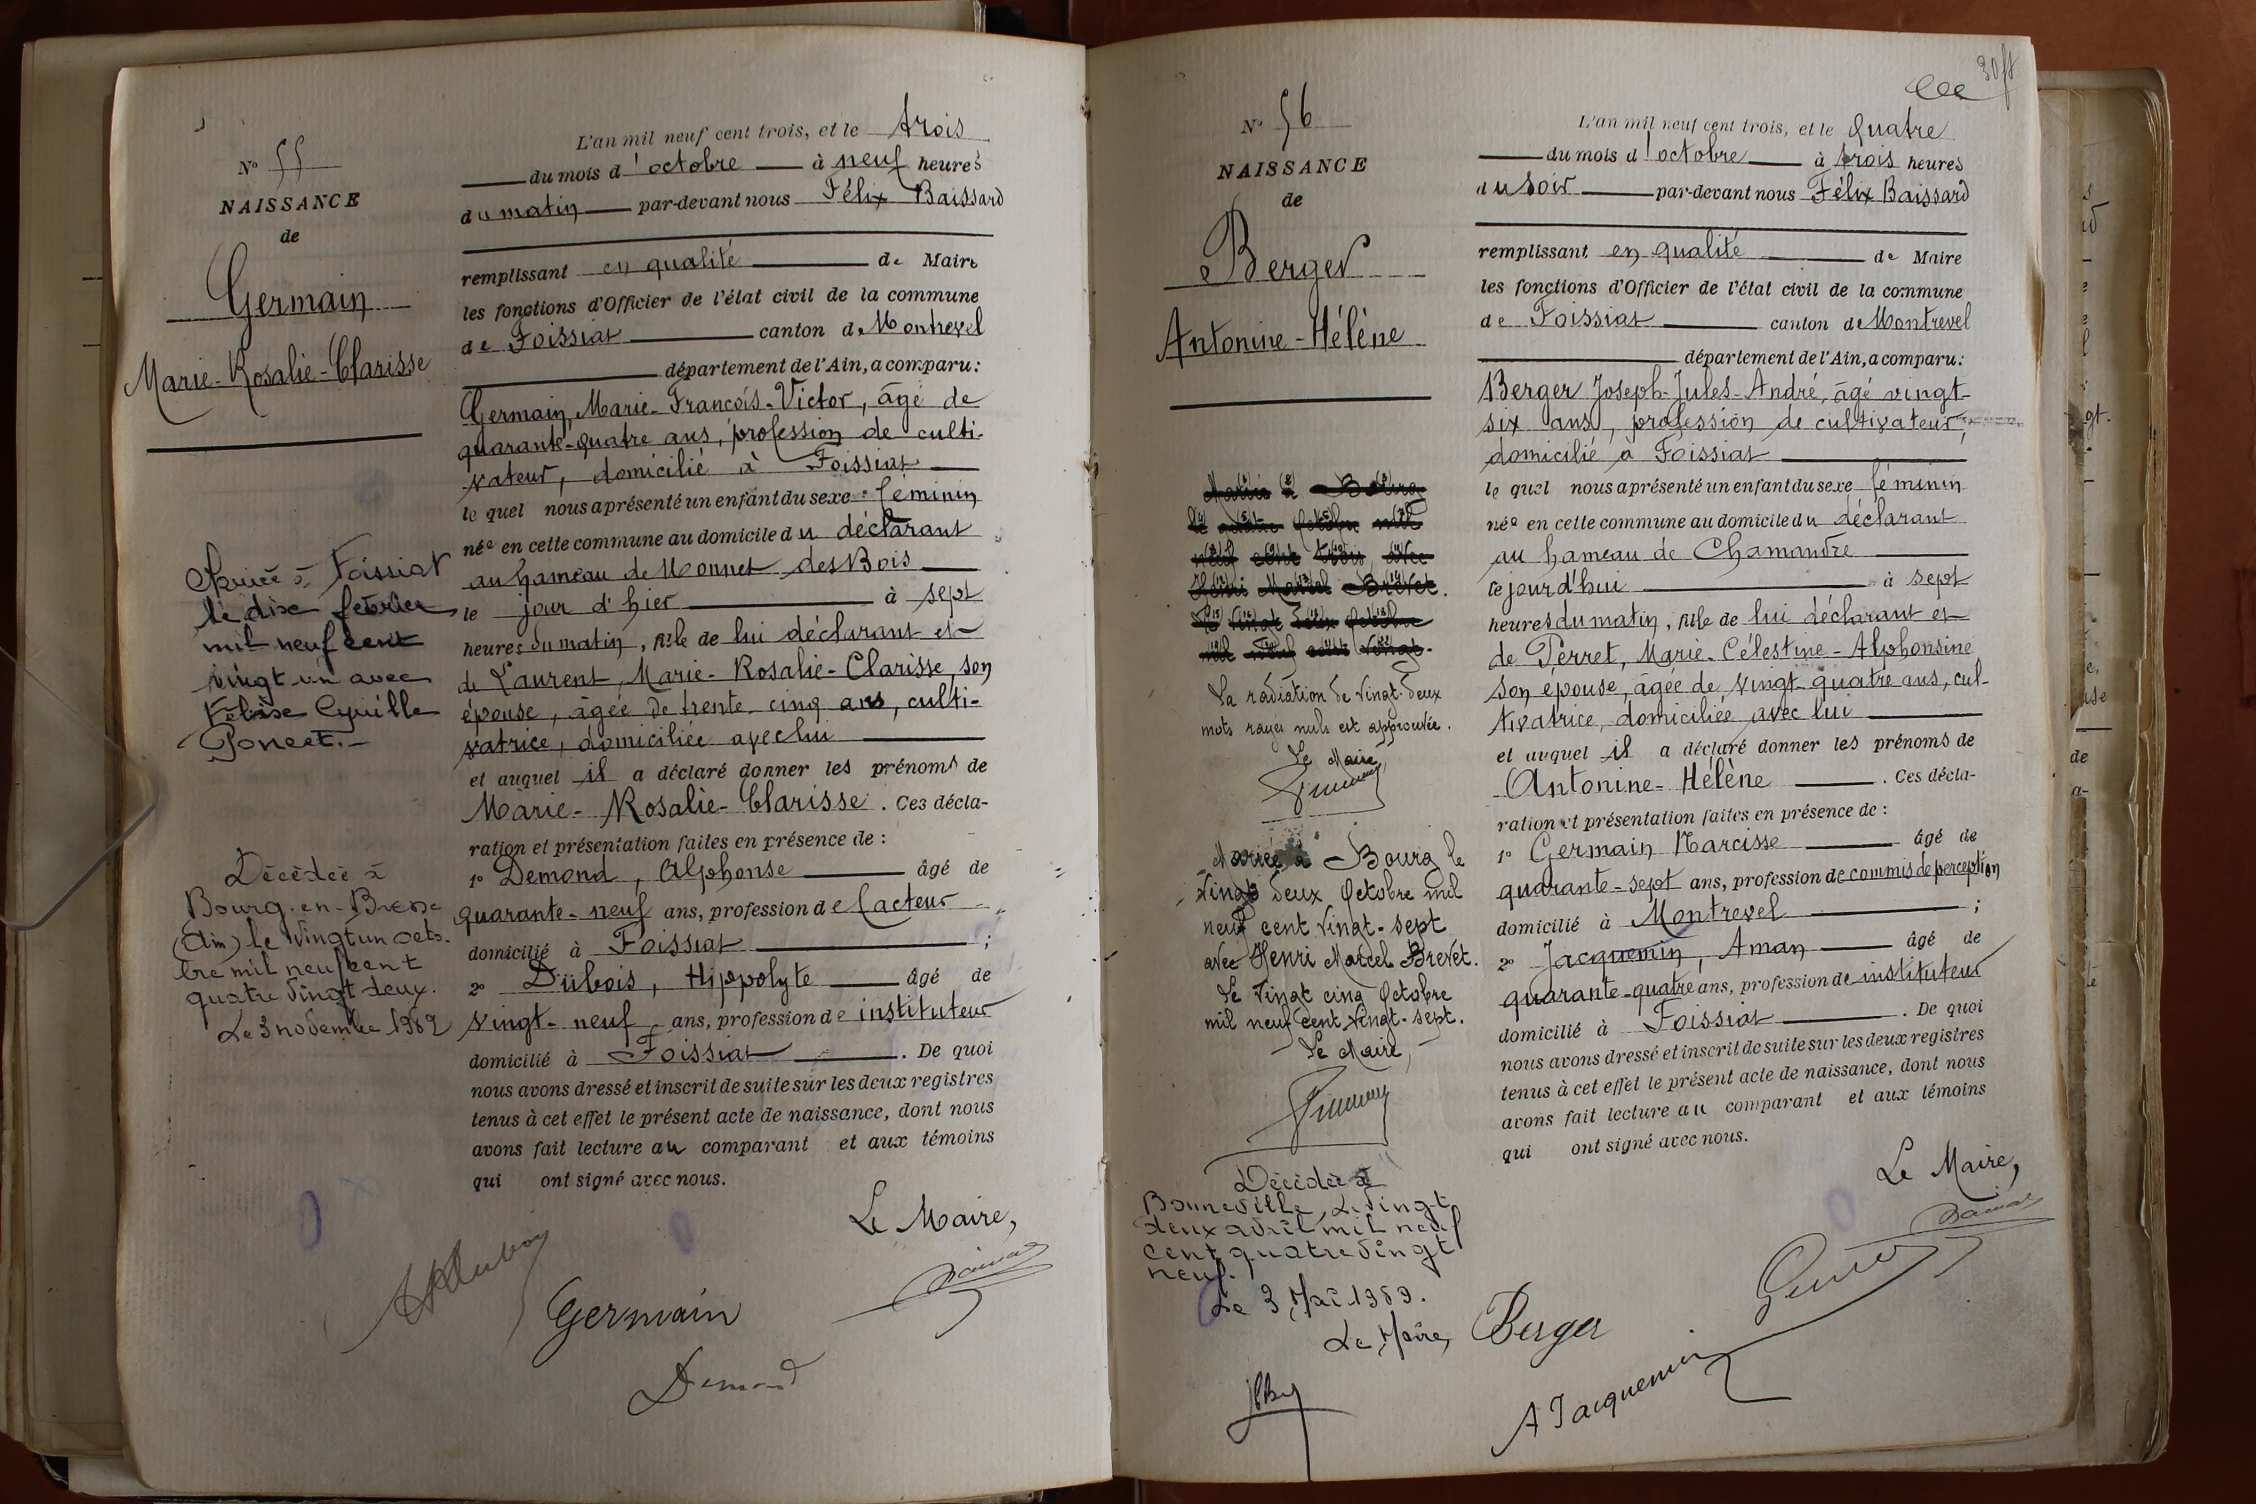 N° 55
NAISSANCE
de
Germain
Marie-Rosalie-Clarisse
Mariée à Foissiat
le dix février
mil neuf cent
vingt-un avec
Félise Cyrille
Poncet.-
Décédée à
Bourg-en-Bresse
(Ain) le vingt un octo-
bre mil neuf cent
quatre vingt deux.
Le 3 novembre 1982
L'an mil neuf cent trois, et le trois
du mois d'octobre à neuf heures
du matin par-devant nous Félix Baissard
remplissant en qualité de Maire
les fonctions d'Officier de l'état civil de la commune
de Foissiat canton de Montrevel
département de l'Ain, a comparu :
Germain, Marie-François-Victor, âgé de
quarante-quatre ans, profession de culti-
vateur, domicilié à Foissiat
le quel nous a présenté un enfant du sexe : féminin
née en cette commune au domicile du déclarant
au hameau de Monnet des Bois
le jour d'hier à sept
heures du matin, fille de lui déclarant et
de Laurent, Marie-Rosalie-Clarisse, son
épouse, âgée de trente-cinq ans, culti-
vatrice, domiciliée avec lui
et auquel il a déclaré donner les prénoms de
Marie-Rosalie-Clarisse. Ces décla-
ration et présentation faites en présence de :
1° Demond, Alphonse âgé de
quarante-neuf ans, profession de facteur
domicilié à Foissiat ;
2° Dubois, Hippolyte âgé de
vingt-neuf ans, profession de instituteur
domicilié à Foissiat. De quoi
nous avons dressé et inscrit de suite sur les deux registres
tenus à cet effet le présent acte de naissance, dont nous
avons fait lecture au comparant et aux témoins
qui ont signé avec nous.
Le Maire,
Germain
Demond
N° 56
NAISSANCE
de
Berger
Antonine-Hélène
La radiation de vingt-deux
mots rayés nuls est approuvée.
Le Maire
Mariée à Bourg le
vingt deux Octobre mil
neuf cent vingt-sept
avec Henri Marcel Brevet.
Le vingt cinq Octobre
mil neuf cent vingt-sept.
Le Maire,
Décédée à
Bonneville, le vingt
deux avril mil neuf
cent quatre vingt
neuf.
Le 3 Mai 1989.
Le Maire,
L'an mil neuf cent trois, et le quatre
du mois d'octobre à trois heures
du soir par-devant nous Félix Baissard
remplissant en qualité de Maire
les fonctions d'Officier de l'état civil de la commune
de Foissiat canton de Montrevel
département de l'Ain, a comparu :
Berger Joseph-Jules-André, âgé vingt-
six ans, profession de cultivateur,
domicilié à Foissiat
le quel nous a présenté un enfant du sexe féminin
née en cette commune au domicile du déclarant
au hameau de Chamandre
le jour d'hui à sept
heures du matin, fille de lui déclarant et
de Perret, Marie-Célestine-Alphonsine
son épouse, âgée de vingt-quatre ans, cul-
tivatrice, domiciliée avec lui
et auquel il a déclaré donner les prénoms de
Antonine-Hélène. Ces décla-
ration et présentation faites en présence de :
1° Germain Narcisse âgé de
quarante-sept ans, profession de commis de perception
domicilié à Montrevel ;
2° Jacquemin, Aman âgé de
quarante-quatre ans, profession de instituteur
domicilié à Foissiat. De quoi
nous avons dressé et inscrit de suite sur les deux registres
tenus à cet effet le présent acte de naissance, dont nous
avons fait lecture au comparant et aux témoins
qui ont signé avec nous.
Le Maire,
Berger
A Jacquemin